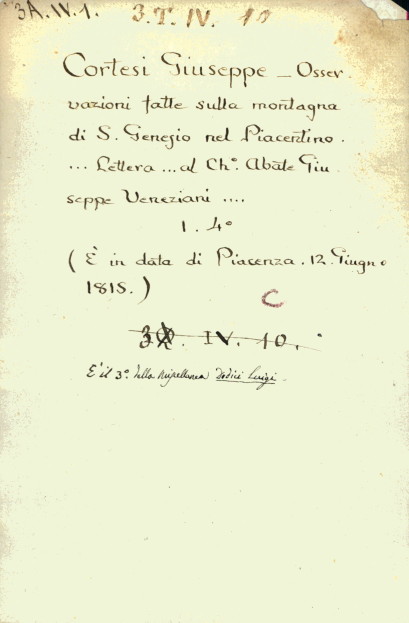 3A. IV. 1.
3. T. IV. 10
Cortesi Giuseppe _ Osser-
vazioni fatte sulla montagna
di S. Genesio nel Piacentino.
... Lettera ... al Ch.º Abate Giu
seppe Veneziani ....
1. 4º
(È in data di Piacenza. 12. Giugno
1818.)
C
IV. 10.
È il 3º. della miscellanea Dodici Luigi.